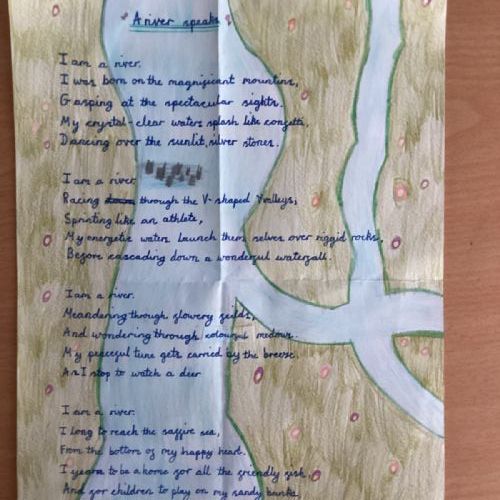 A river speaks
I am a river.
I was born on the magnificant mountins,
Gasping at the spectacular sights.
My crystal-clear waters splash like confetti,
Dancing over the sunlit, silver stones.
I am a river.
Racing through the V-shaped Valleys,
Sprinting like an athlete,
My energetic waters launch them selves over riggid rocks,
Before cascading down a wonderful waterfall.
I am a river.
Meandering through flowery feilds,
And wondering through colourful medows.
My peaceful tune gets carried by the breeze.
As I stop to watch a deer
I am a river.
I long to reach the saffire sea,
From the bottom of my happy heart.
I yearn to be a home for all the friendly fish,
And for children to play on my sandy banks.